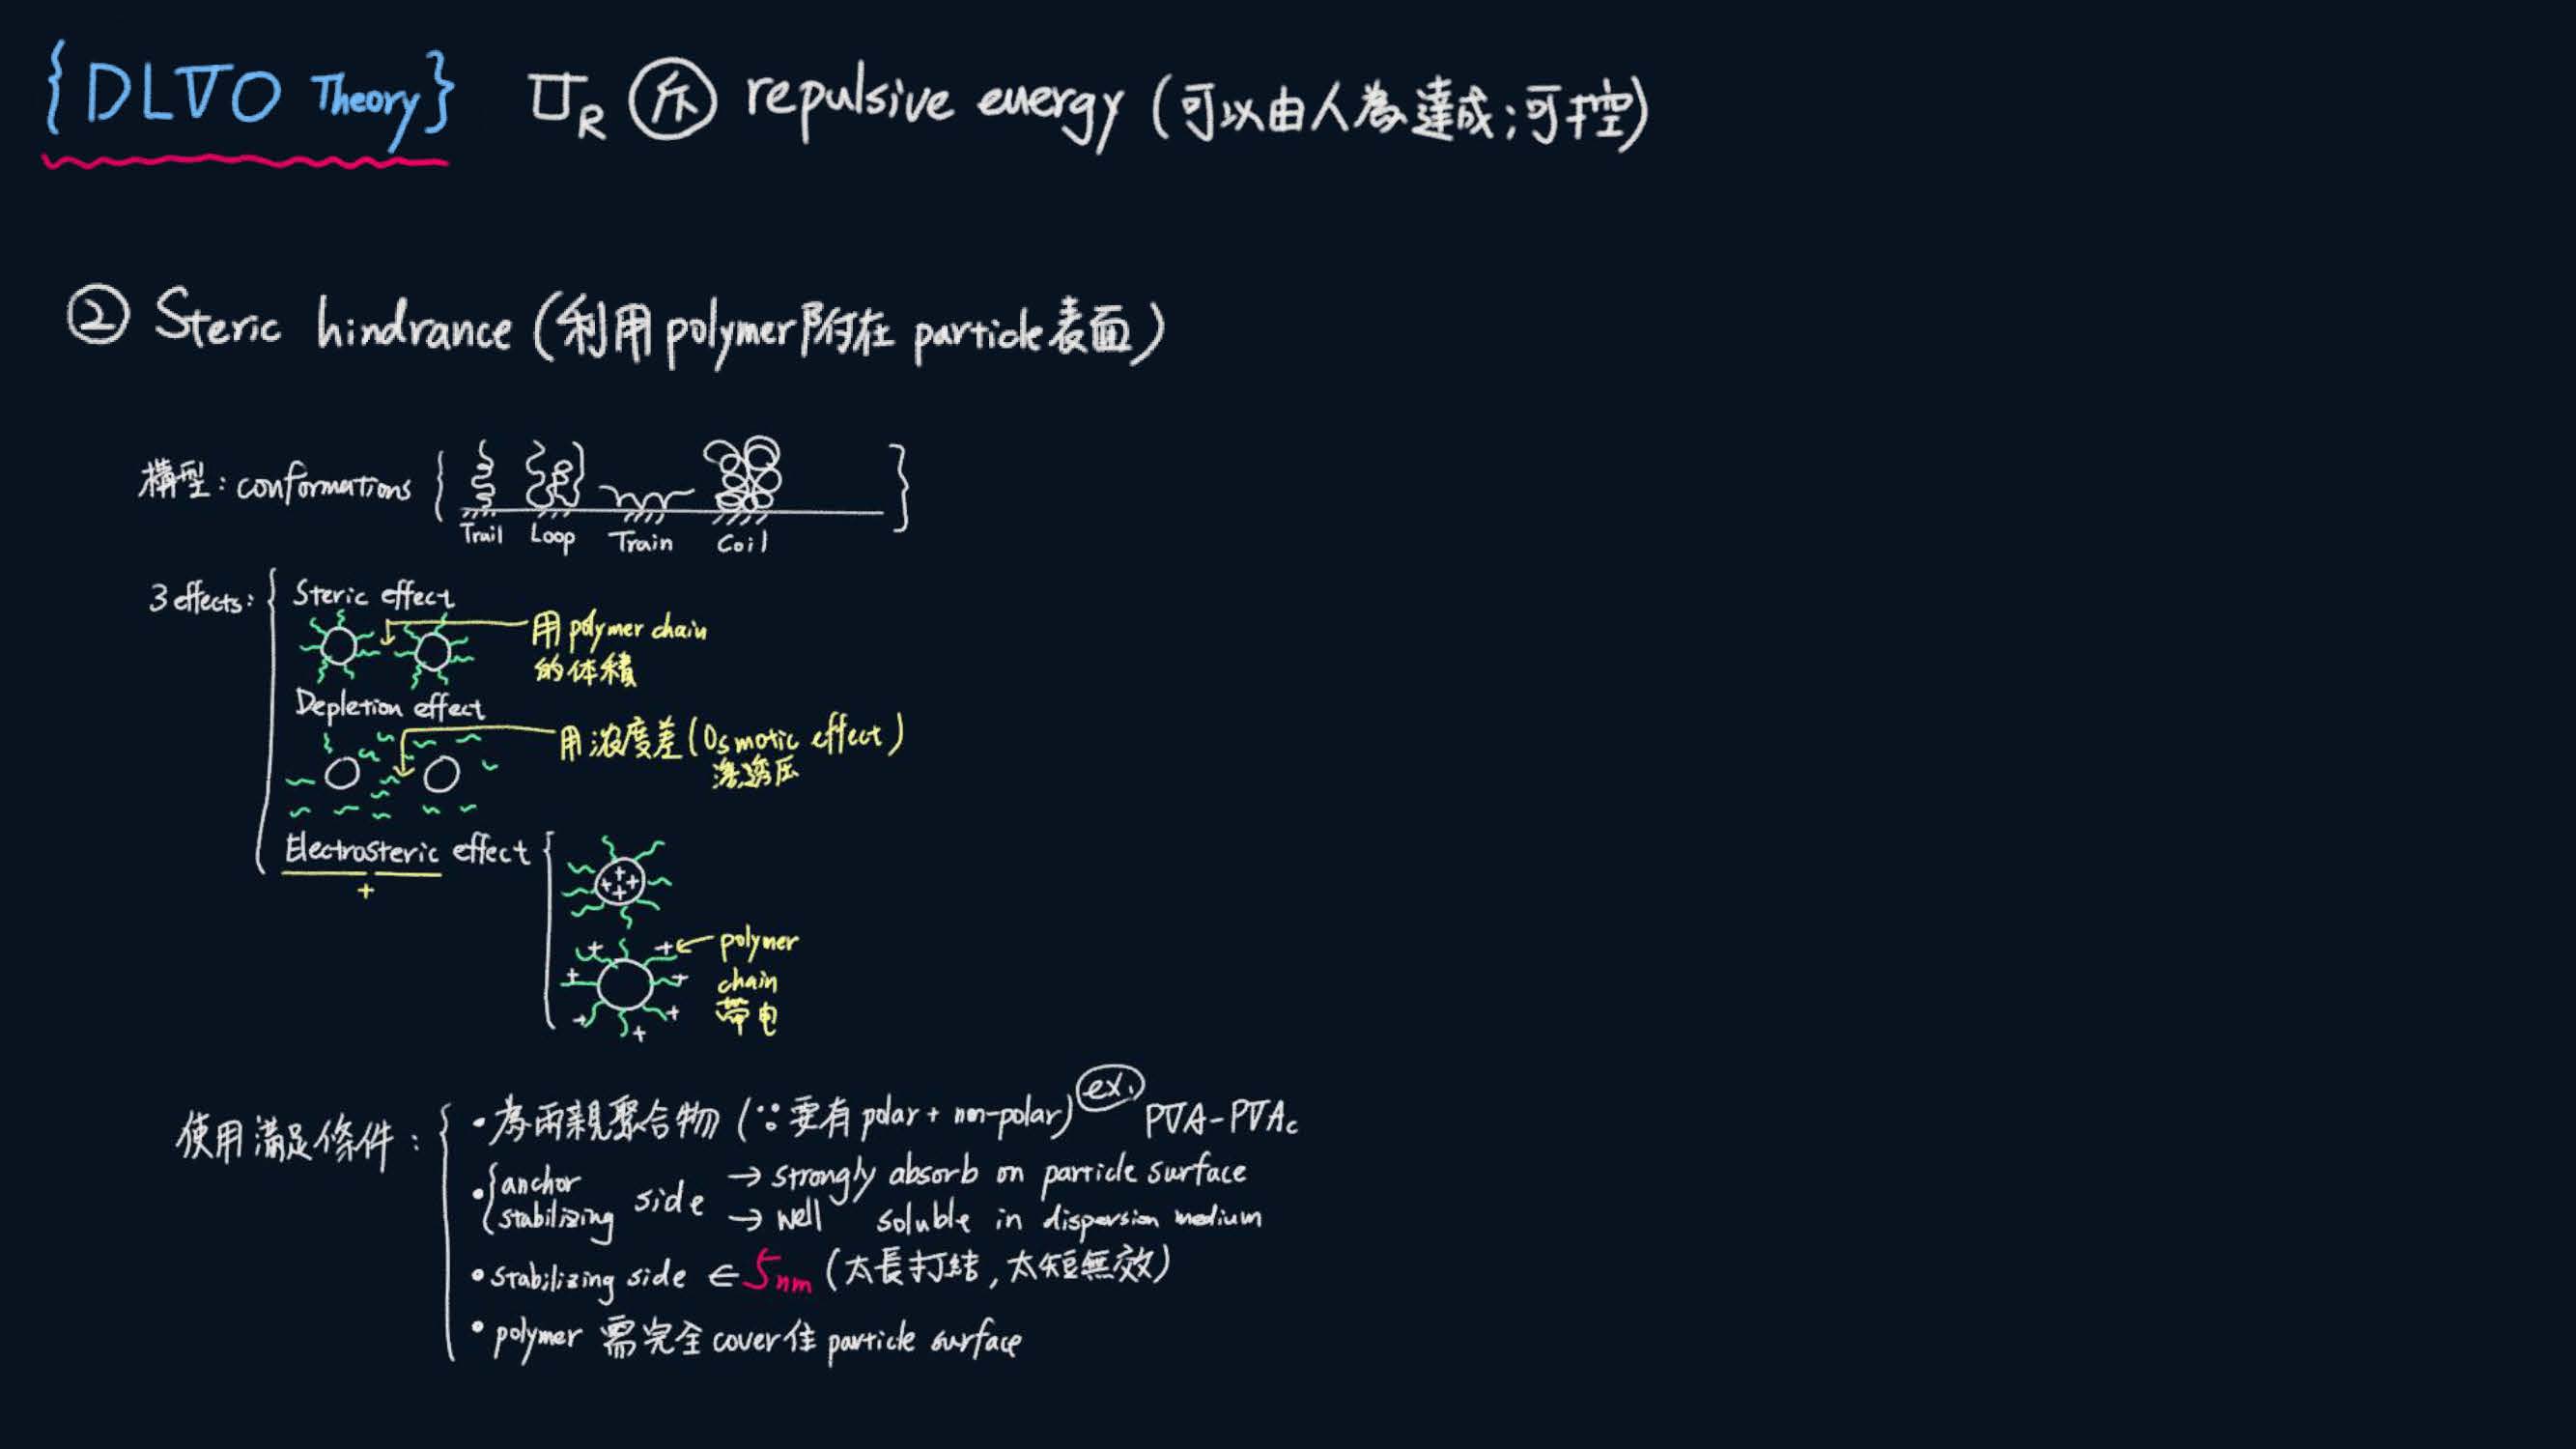 {DLVO Theory} U_R 斥 repulsive energy (可以由人為達成;可控)
② Steric hindrance (利用 polymer 附在 particle 表面)
構型: conformations
Trail Loop Train Coil
3 effects: Steric effect
用 polymer chain
的体積
Depletion effect
用浓度差 (Osmotic effect)
滲透压
Electrosteric effect
+
polymer
chain
帶电
使用滿足條件:
• 為兩親聚合物 (∵要有 polar + non-polar) ex. PVA-PVAc
• anchor side → strongly absorb on particle surface
stabilizing side → well soluble in dispersion medium
• stabilizing side ∈ 5nm (太長打結, 太短無效)
• polymer 需完全 cover 住 particle surface